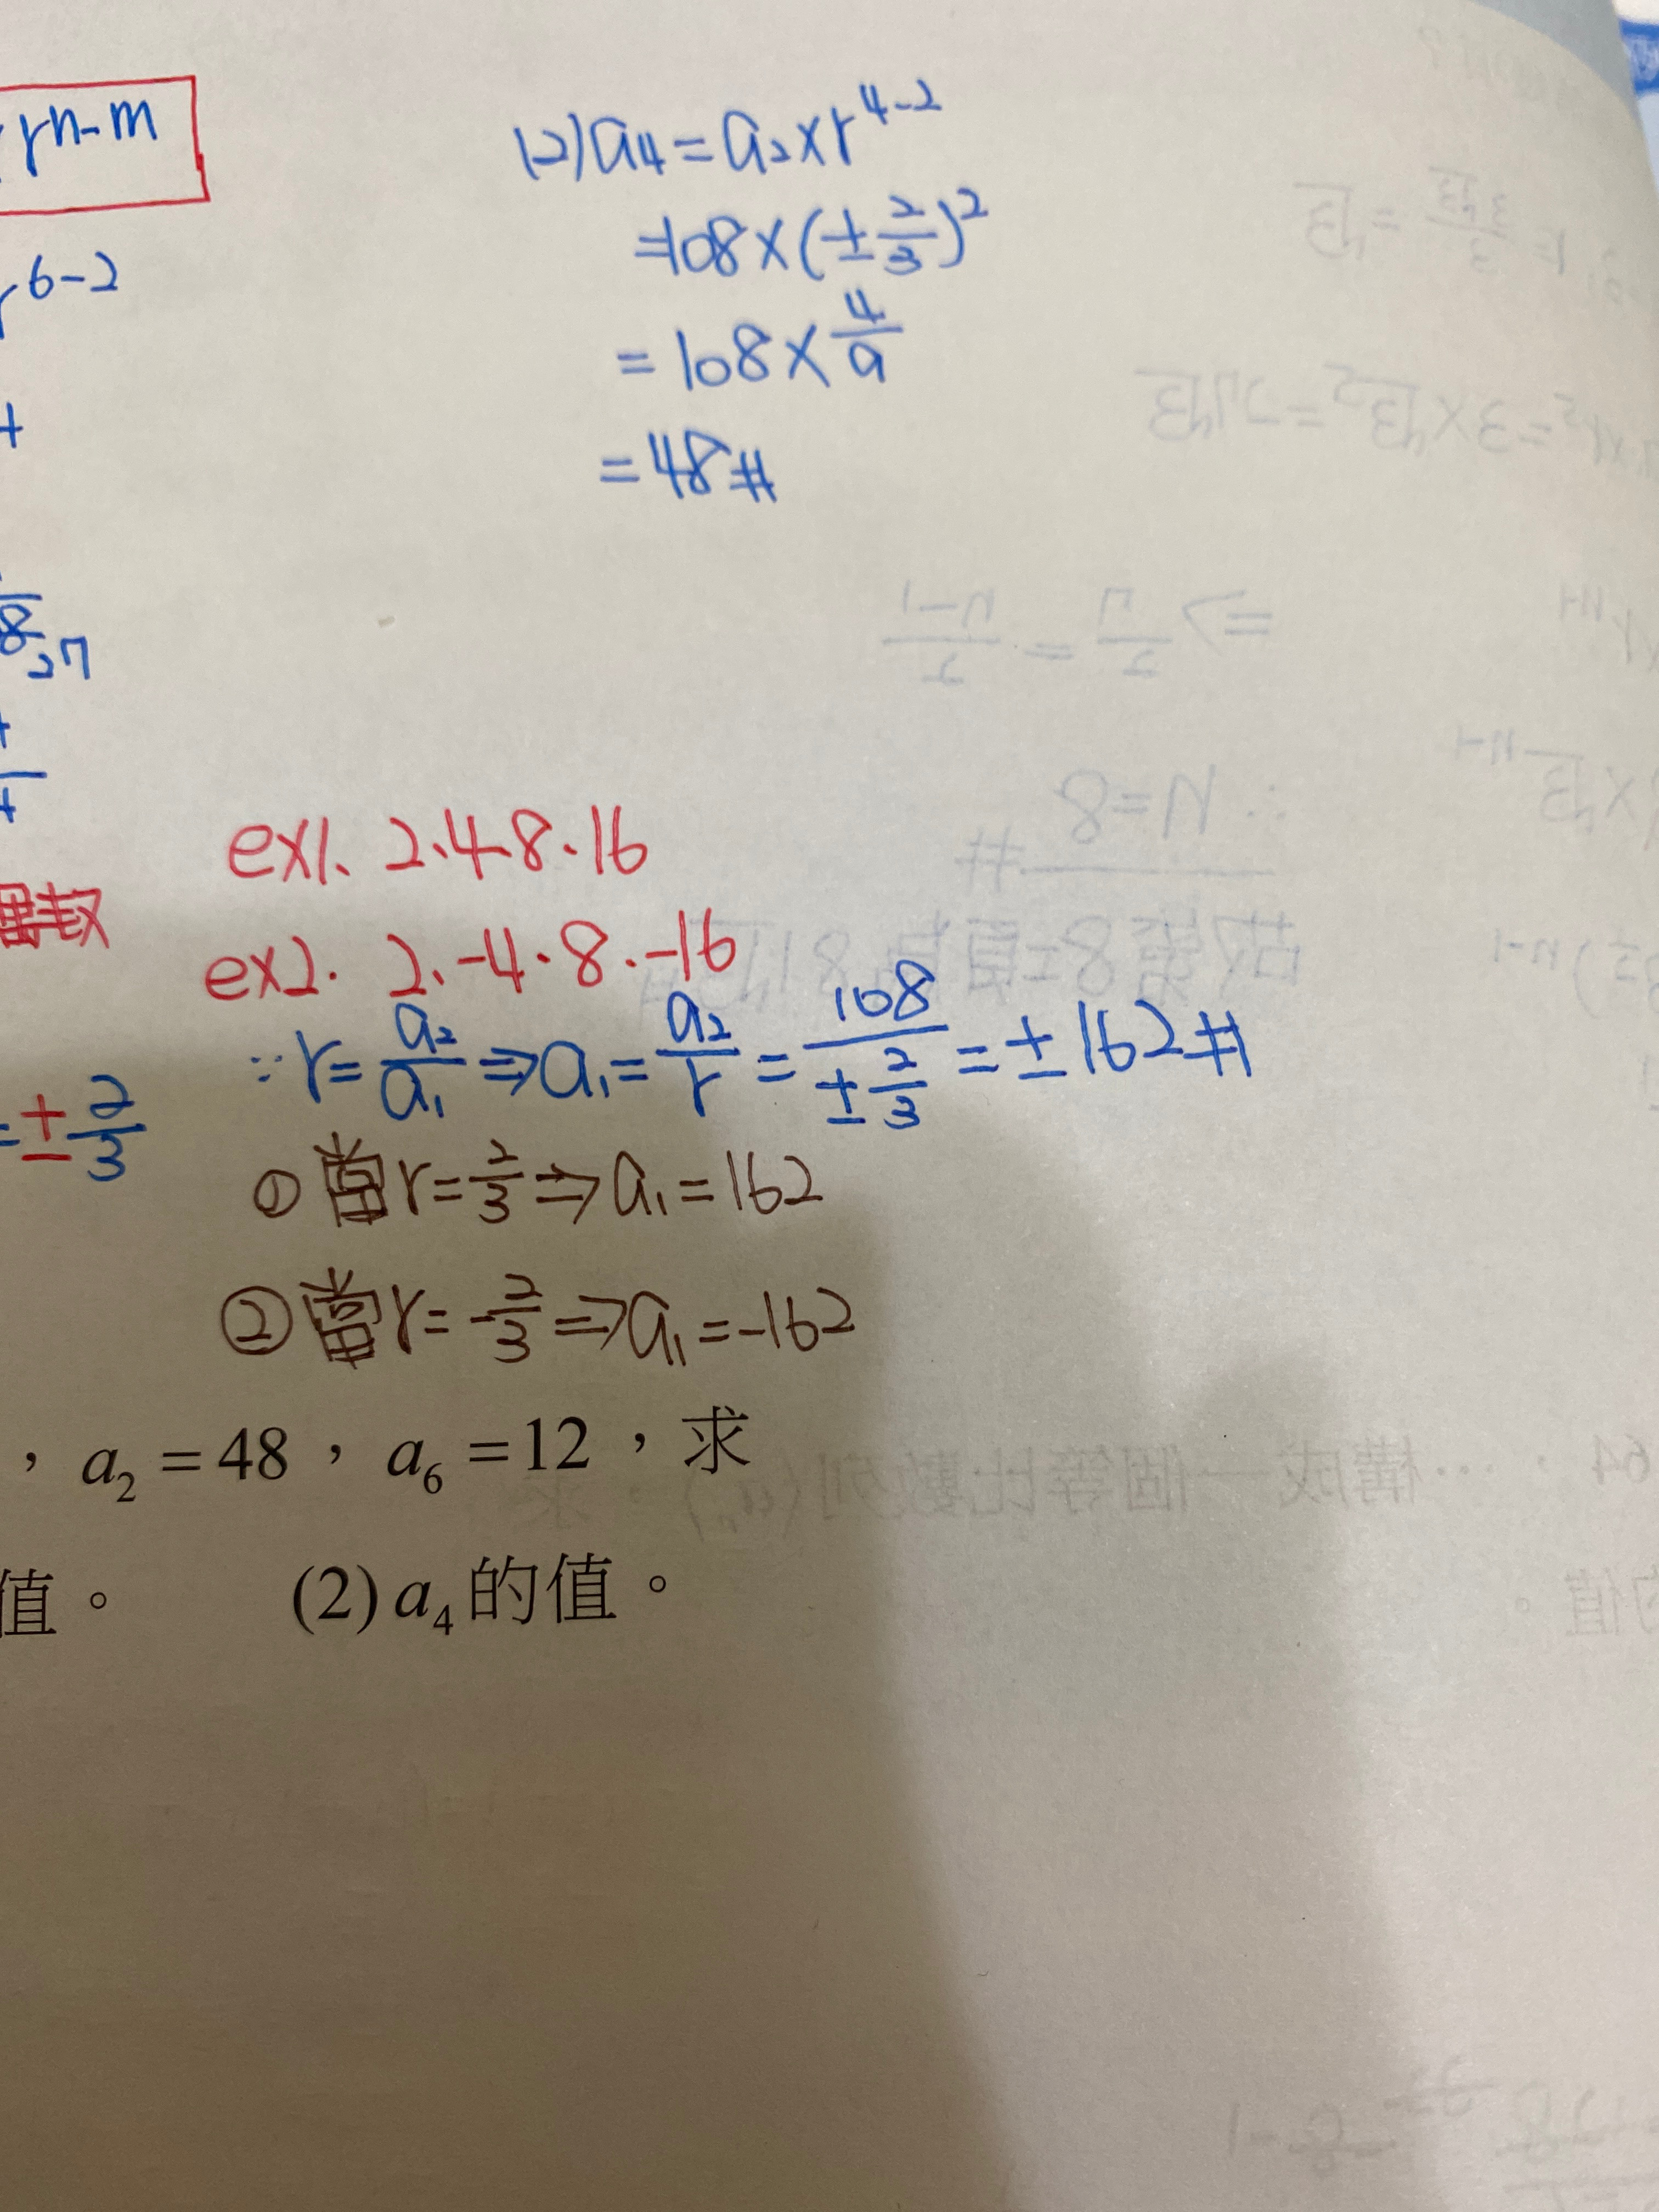 r^{n-m}
(2) a₄ = a₂ × r^{4-2}
= 108 × (± 2/3)²
r^{6-2}
= 108 × 4/9
= 48 #
8
27
ex1. 2.4.8.16
偶數
ex2. 2.-4.8.-16
∵ r = a₂/a₁ ⇒ a₁ = a₂/r = 108/(± 2/3) = ±162 #
= ± 2/3
① 當 r = 2/3 ⇒ a₁ = 162
② 當 r = -2/3 ⇒ a₁ = -162
，a₂ = 48，a₆ = 12，求
值。 (2) a₄ 的值。